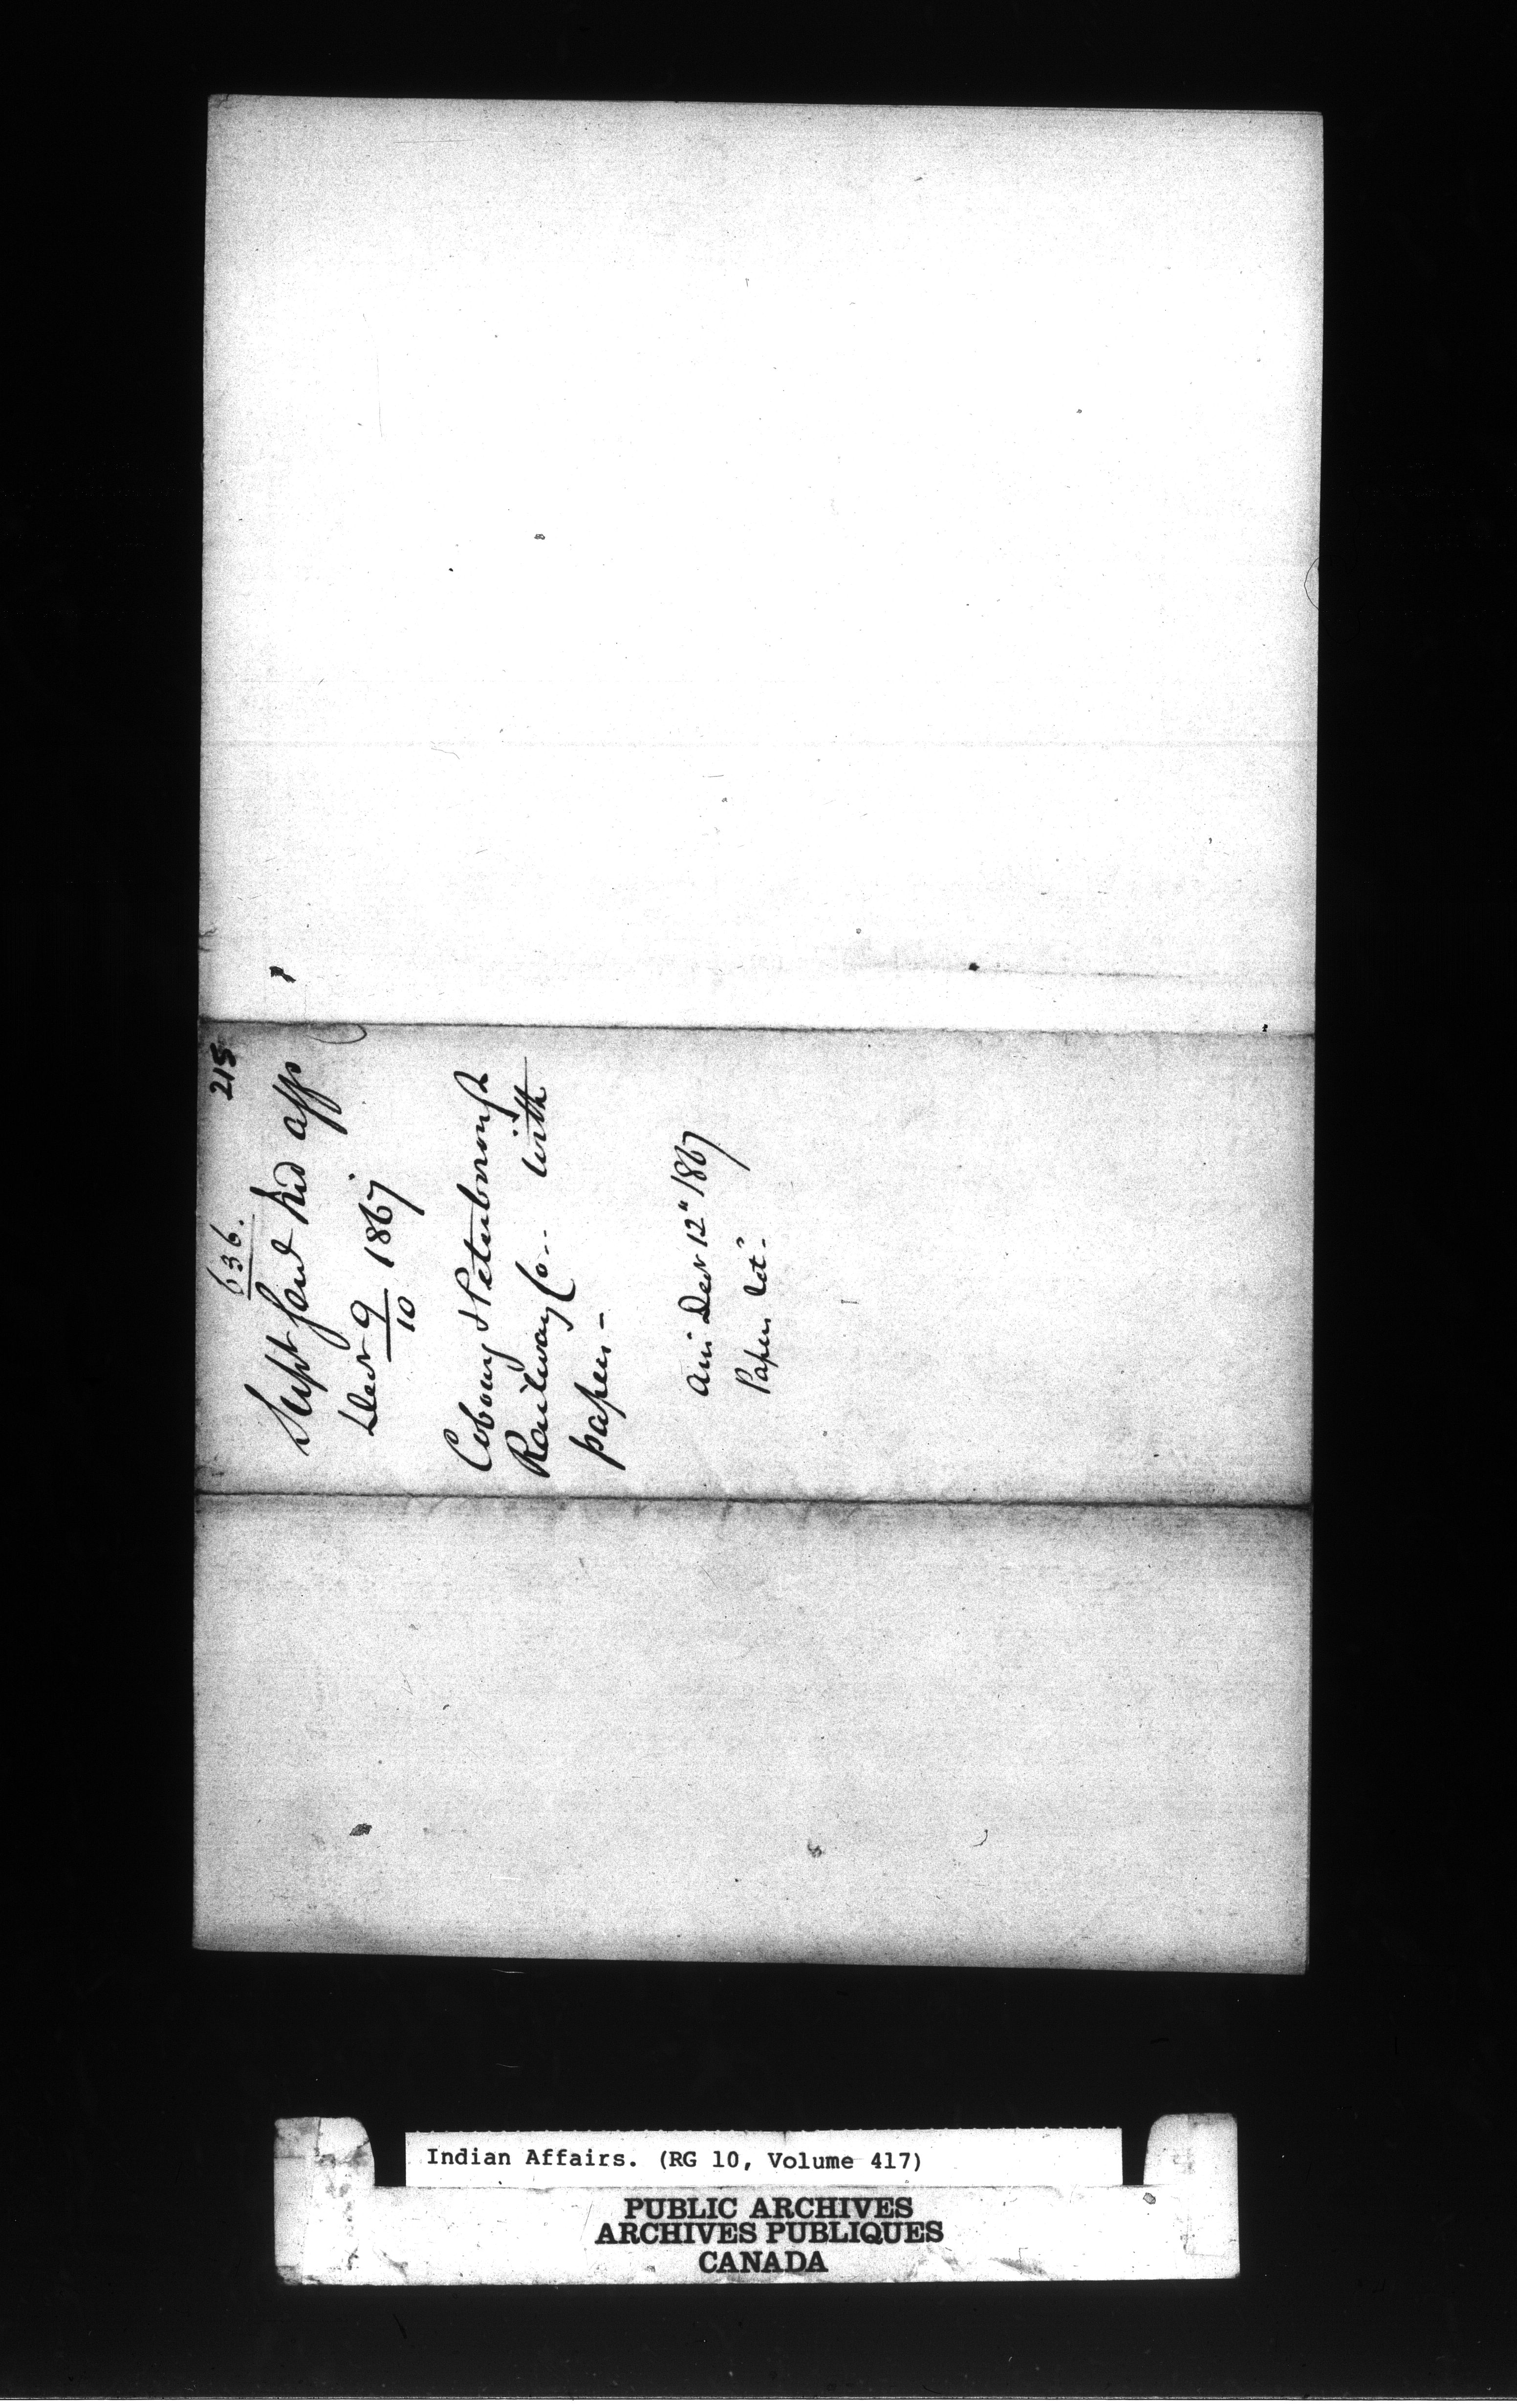 215
636.
Supt Genl Ind Aff
Decr 9/10 1867
Cobourg & Peterborough
Railway Co.. with
papers -
Decr 12" 1867
Papers
Indian Affairs. (RG 10, Volume 417)
PUBLIC ARCHIVES
ARCHIVES PUBLIQUES
CANADA